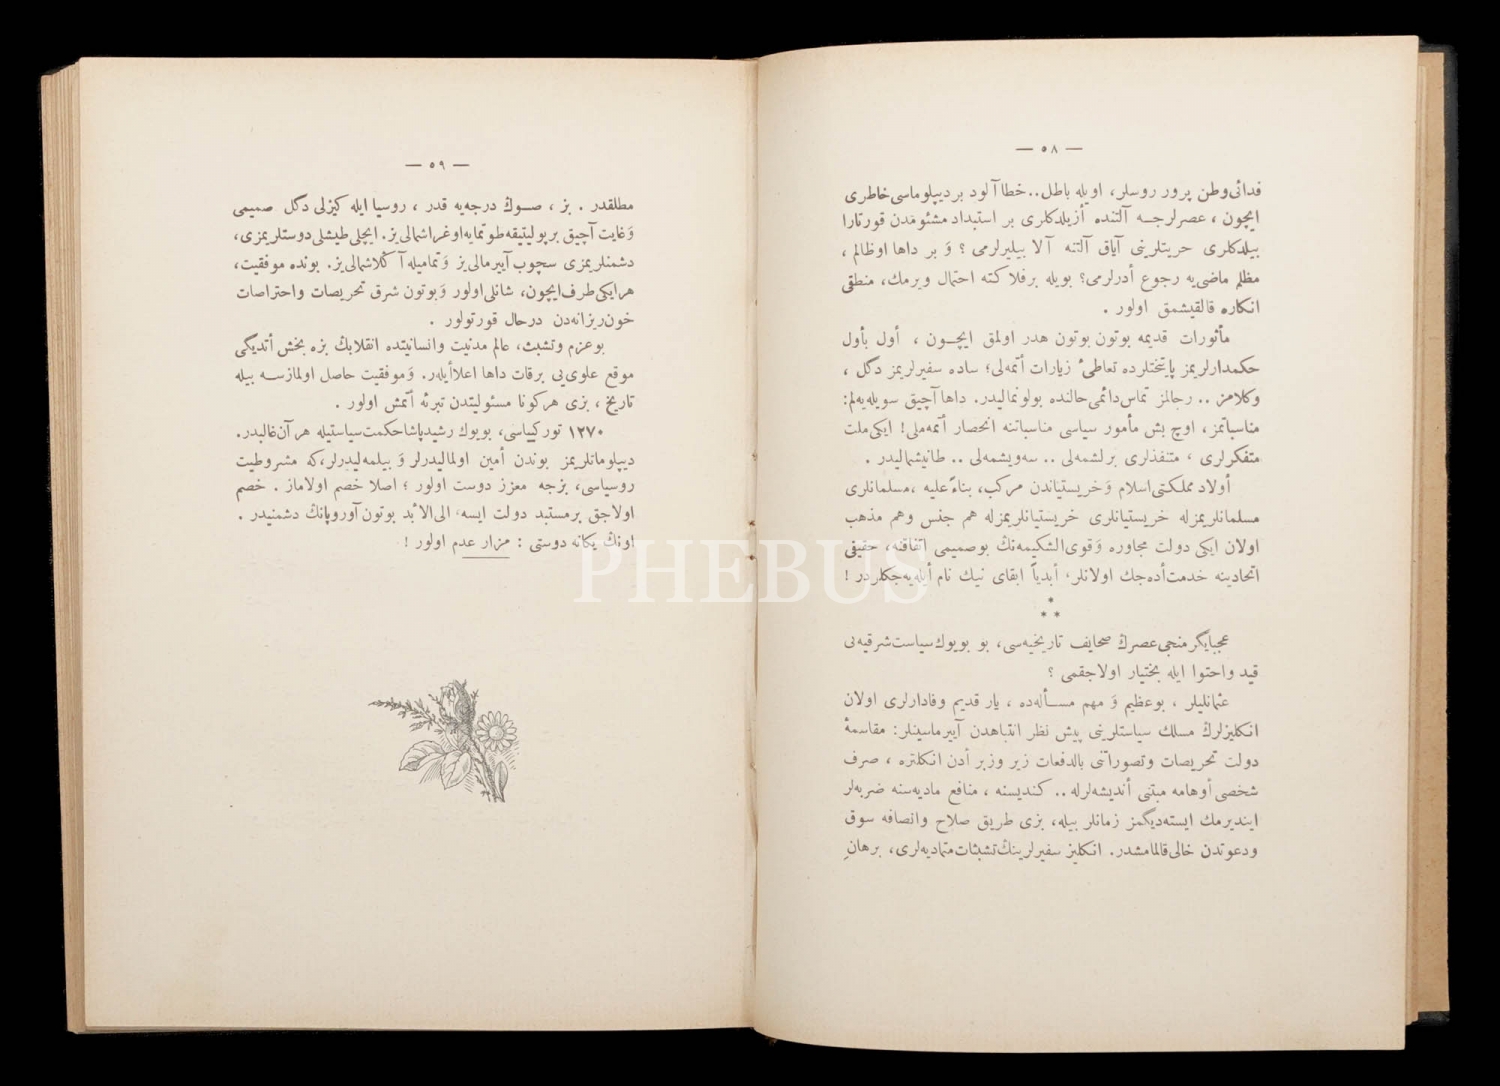 — ٥٨ —
فدائی‌وطن پرور روسلر، اویله باطل.. خطا آلود بر دیپلوماسی خاطری
ایچون ، عصرلرجـه آلتنده أزیلدکلری بر استبداد مشئومدن قورتارا
بیلدکلری حریتلرینی آیاق آلتنه آلا بیلیرلرمی ؟ وَ بر داها اوظالم ،
مظلم ماضی‌یه رجوع أدرلرمی؟ بویله برفلاکته احتمال ویرمك، منطقی
انکاره قالقیشمق اولور .
مأثورات قدیمه بوتون بوتون هدر اولمق ایچـون ، أول بأول
حکمدارلریمز پایتختلرده تعاطیٔ زیارات أتمه‌لی؛ ساده سفیرلریمز دگل ،
وکلامز .. رجالمز تماس دائمی حالنده بولونمالیدر. داها آچیق سویله‌یه‌لم:
مناسباتمز، اوچ بش مأمور سیاسی مناسباتنه انحصار أتمه‌ملی! ایکی ملت
متفکرلری ، متنفذلری برلشمه‌لی .. سه‌ویشمه‌لی .. طانیشمالیدر .
أولاد مملکتی اسلام وَ خریستیاندن مرکب، بناءً علیه ،مسلمانلری
مسلمانلریمزله خریستیانلری خریستیانلریمزله هم جنس وهم مذهب
اولان ایکی دولت مجاوره وَ قوی‌الشکیمه‌نك بوصمیمی إتفاقنه، حقیقی
اتحادینه خدمت‌أده‌جك اولانلر، أبدیاً ابقای نیك نام أیله‌یه‌جکلردر !
* * *
عجبا یگرمنجی عصرڭ صحایف تاریخیه‌سی، بو بویوك سیاست شرقیه‌یی
قید واحتوا ایله بختیار اولاجقمی ؟
عثمانلیلر ، بوعظیم وَ مهم مسـأله‌ده ، یار قدیم وفادارلری اولان
انکلیزلرڭ مسلك سیاستلرینی پیش نظر انتباهدن آییرماسینلر: مقاسمهٔ
دولت تحریصات وتصوراتنی بالدفعات زیر وزبر أدن انکلتره ، صرف
شخصی أوهامه مبتنی أندیشه‌لرله .. کندیسنه ، منافع مادیه‌سنه ضربه‌لر
ایندیرمك ایسته‌دیگمز زمانلر بیله، بزی طریق صلاح وانصافه سوق
ودعوتدن خالی قالمامشدر. انکلیز سفیرلرینڭ تشبثات متمادیه‌لری، برهانِ
— ٥٩ —
مطلقدر . بز ، صـوڭ درجه‌یه قدر ، روسیا ایله کیزلی دگل صمیمی
وَ غایت آچیق بر پولیتیقه طوتمایه اوغراشمالی‌یز. ایچلی طیشلی دوستلریمزی،
دشمنلریمزی سچوب آییرمالی‌یز وَ تمامیله آڭلاشمالی‌یز. بونده موفقیت،
هر ایکی طرف ایچون، شانلی اولور وَ بوتون شرق تحریصات واحتراصات
خون‌ریزانه‌دن درحال قورتولور .
بوعزم وتشبث، عالم مدنیت وانسانیتده انقلابڭ بزه بخش أتدیگی
موقع علوی‌یی برقات داها اعلا أیلر. وَ موفقیت حاصل اولمازسـه بیله
تاریخ ، بزی هرکونا مسئولیتدن تبرئه أتمش اولور .
١٢٧٠ تورکییاسی، بویوك رشید پاشا حکمت سیاستیله هر آن غالبدر.
دیپلوماتلریمز بوندن أمین اولمالیدرلر وَ بیلمه‌لیدرلر،که مشروطیت
روسیاسی، بزجه معزز دوست اولور ؛ اصلا خصم اولاماز . خصم
اولاجق بر مستبد دولت ایسه، الی‌الأبد بوتون آوروپانڭ دشمنیدر .
اونڭ یکانه دوستی : مزار عدم اولور !
PHEBUS